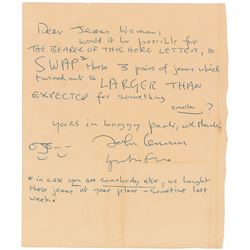 Dear Jeans Woman,
would it be possible for
THE BEARER OF THIS HERE LETTER, to
SWAP* these 3 pairs of jeans which
turned out to LARGER THAN
EXPECTED for something
smaller?
yours in baggy pants, with thanks,
John Lennon
Yoko Ono
* in case you are somebody else, we bought
these jeans at your place - sometime last
week.